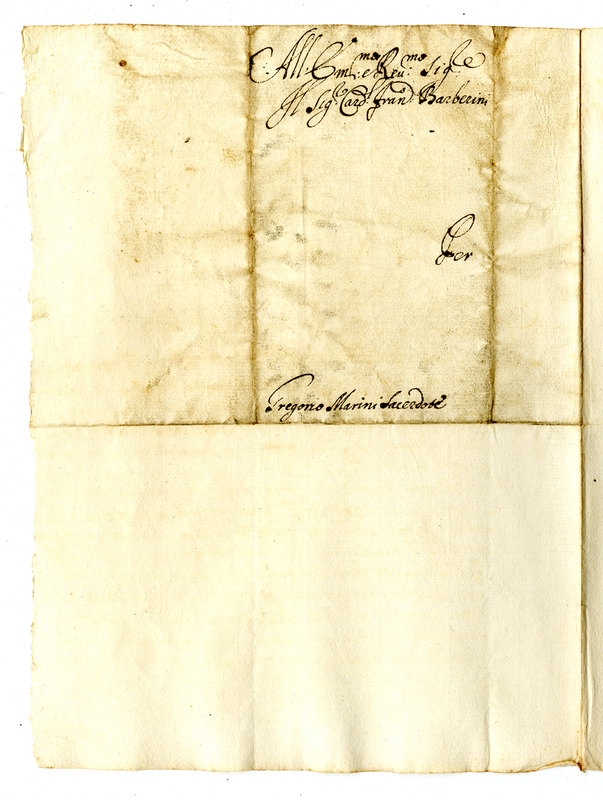 All Em.mo e Reu.mo Sig.re
Il Sig.r Card. Fran.o Barberini
Per
Gregorio Marini Sacerdote